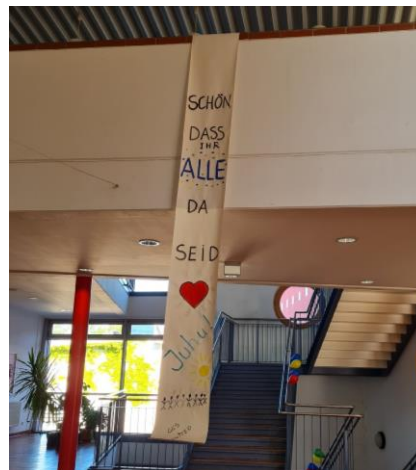 SCHÖN
DASS
IHR
ALLE
DA
SEID
Juhu!